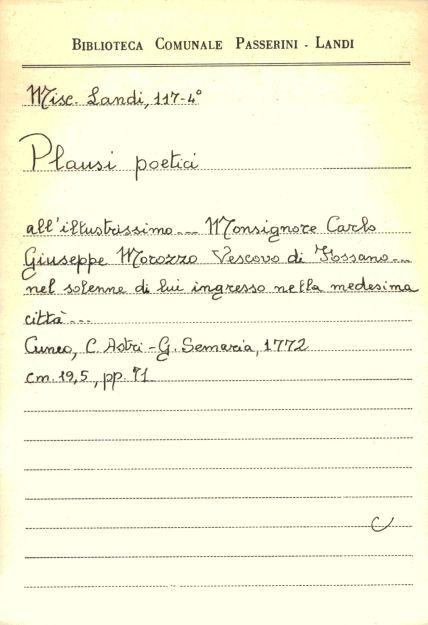 BIBLIOTECA COMUNALE PASSERINI - LANDI
Misc. Landi, 117-4°
Plausi poetici
all'illustrissimo --- Monsignore Carlo
Giuseppe Morozzo Vescovo di Fossano ---
nel solenne di lui ingresso nella medesima
città ---
Cuneo, C. Astri - G. Semaria, 1772
cm. 19,5, pp. 71
C